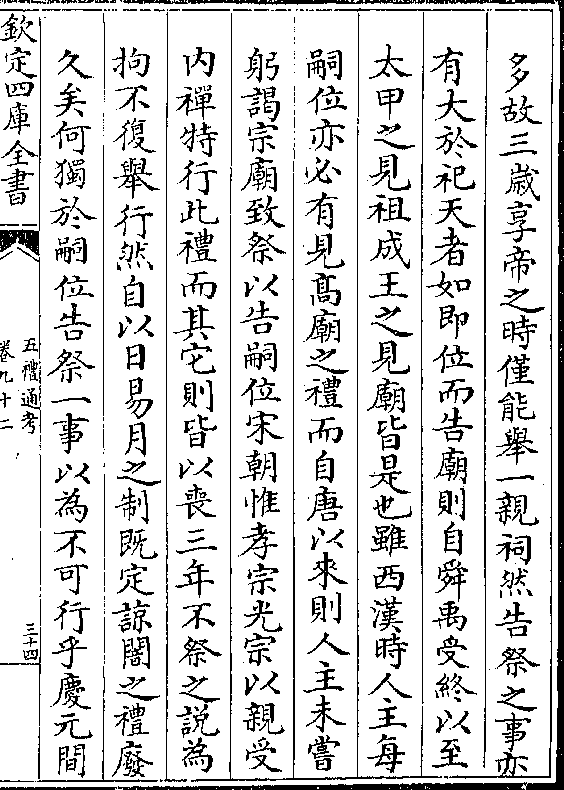 多故三歲享帝之時僅能舉一親祠然告祭之事亦
有大於祀天者如即位而告廟則自舜禹受終以至
太甲之見祖成王之見廟皆是也雖西漢時人主每
嗣位亦必有見髙廟之禮而自唐以來則人主未嘗
躬謁宗廟致祭以告嗣位宋朝惟孝宗光宗以親受
内禪特行此禮而其它則皆以喪三年不祭之說為
拘不復舉行然自以日易月之制既定諒闇之禮廢
久矣何獨於嗣位告祭一事以為不可行乎慶元間
欽定四庫全書
五禮通考
卷九十二
三十四